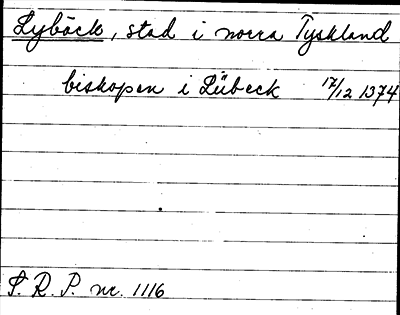 Lyböck, stad i norra Tyskland
biskopen i Lübeck 17/12 1374
S. R. P. nr. 1116